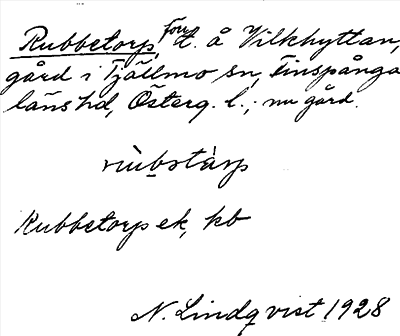 Rubbetorp, Torp t. å Vilkhyttan,
gård i Tjällmo sn, Finspånga
läns hd, Österg. l.; nu gård.
rùbstàrp
Rubbetorp ek, kb
N. Lindqvist 1928